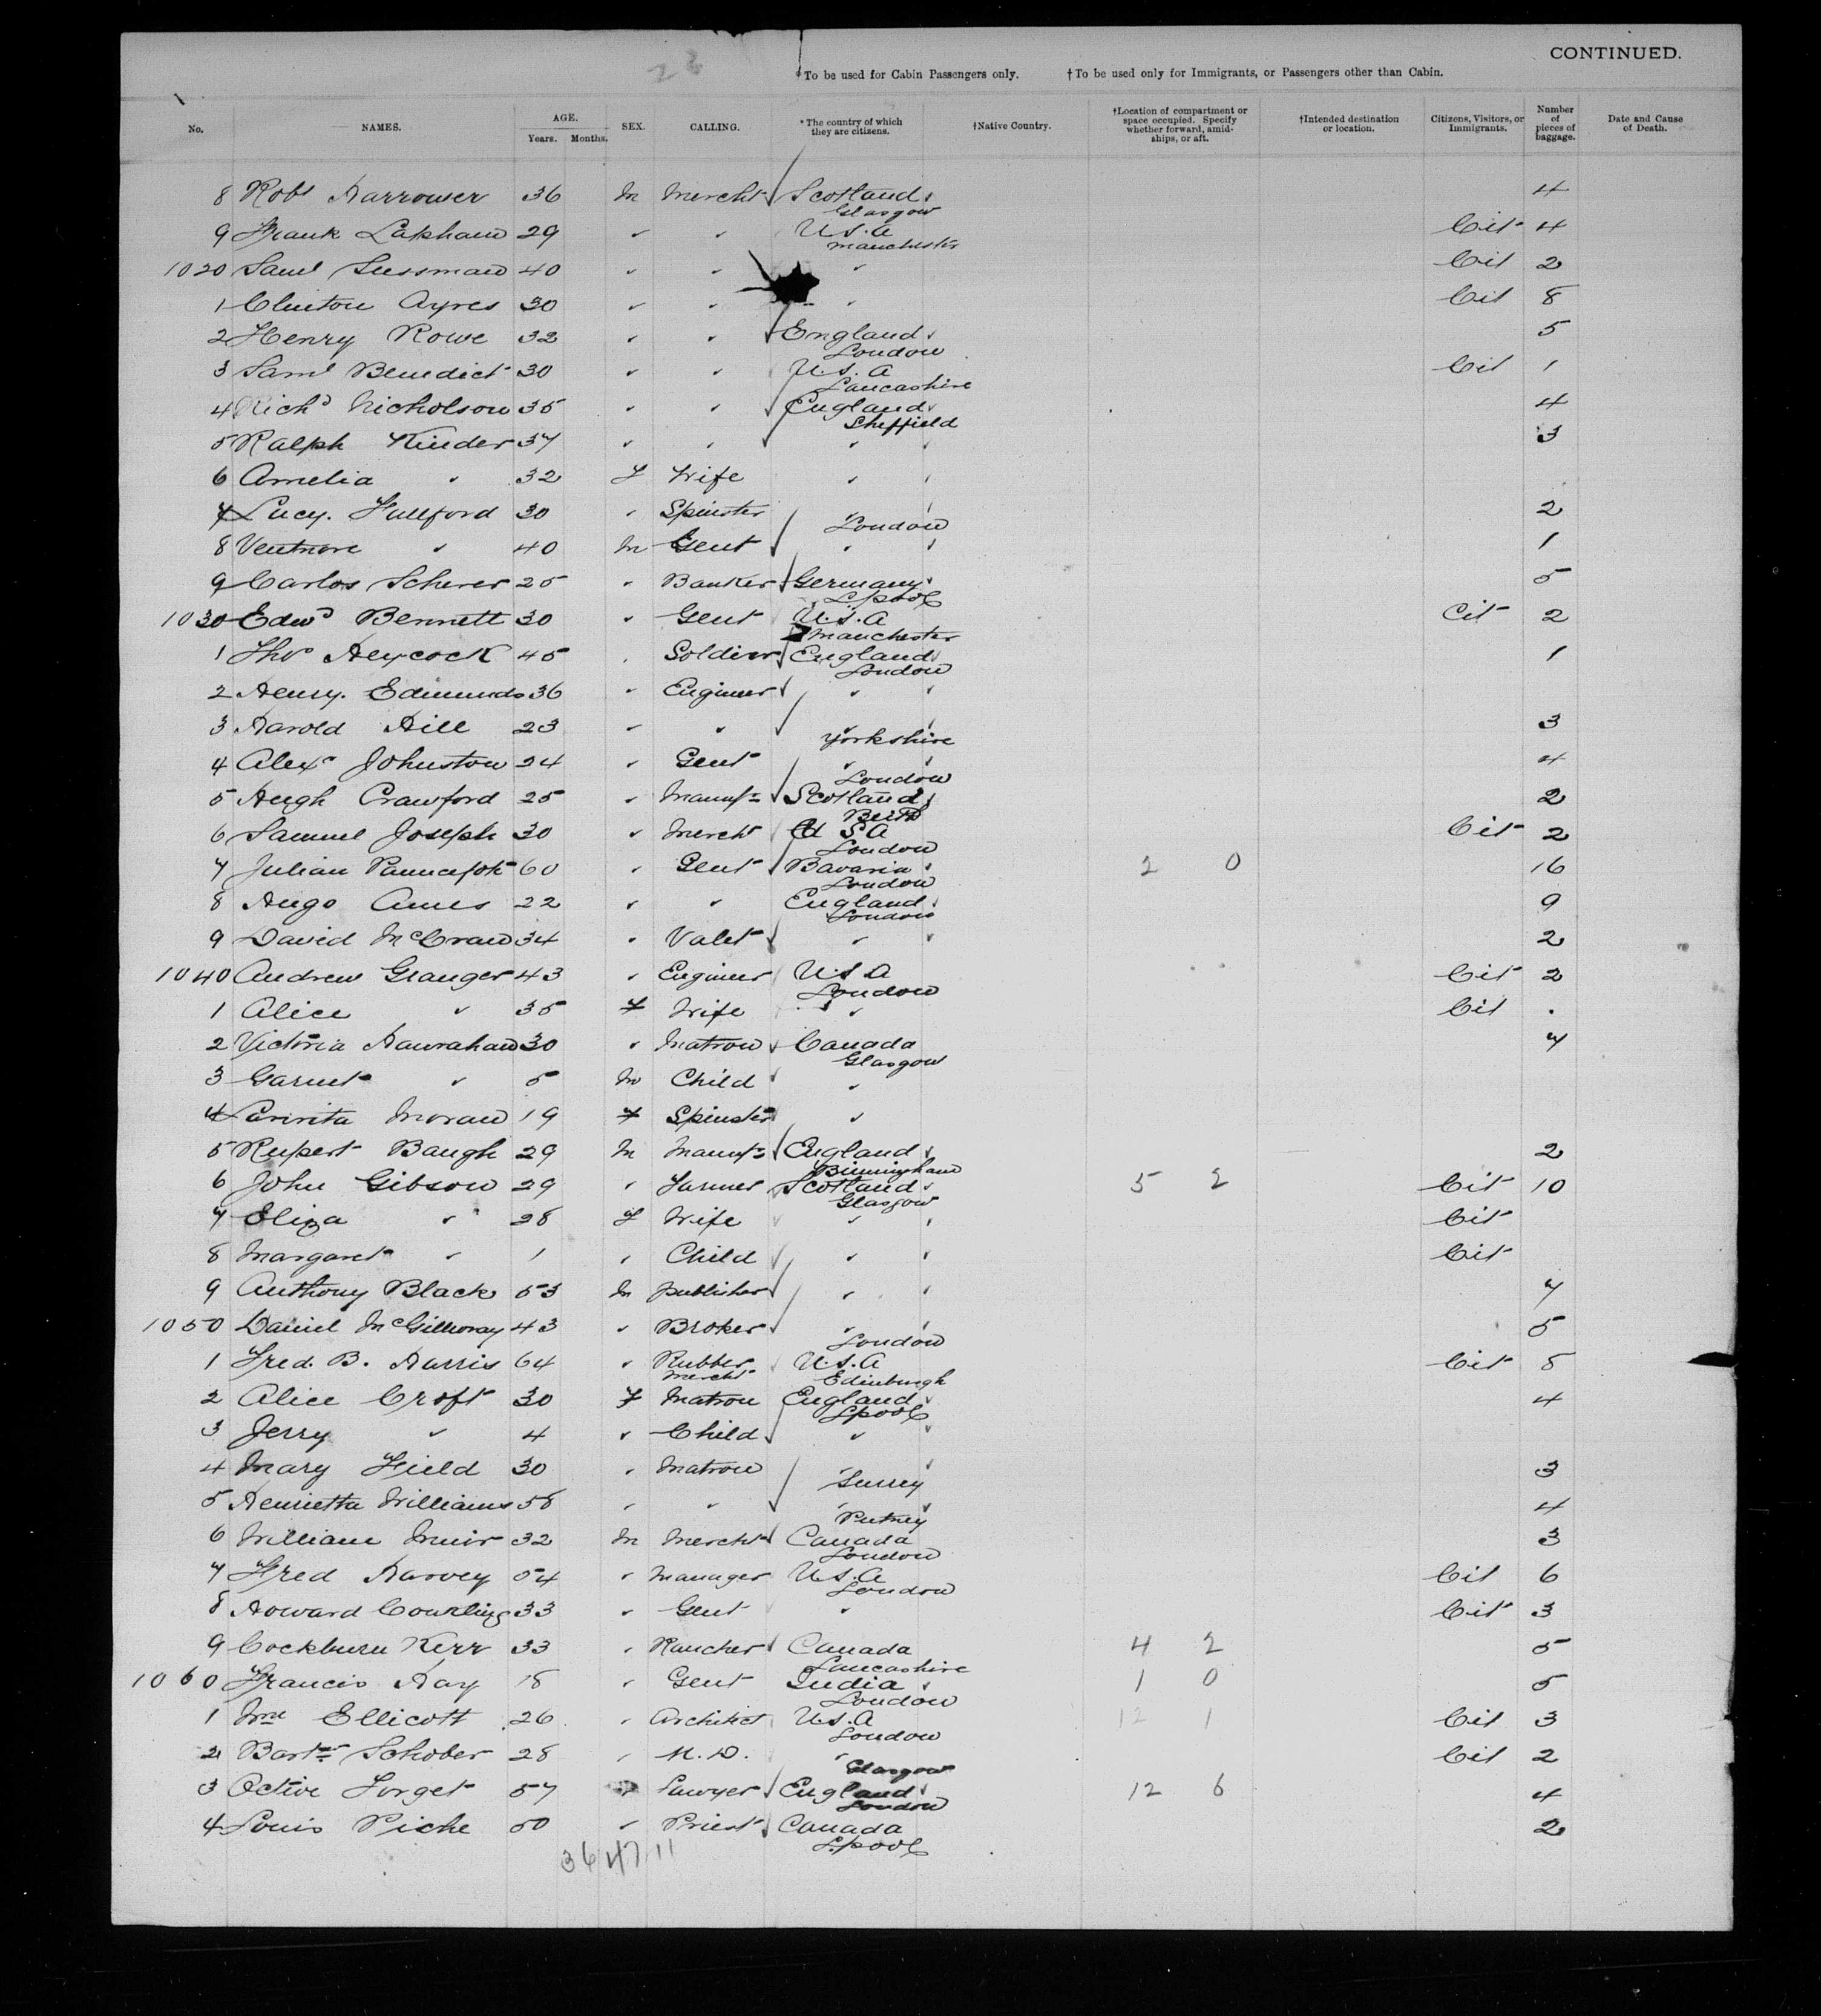 CONTINUED.
23
*To be used for Cabin Passengers only. †To be used only for Immigrants, or Passengers other than Cabin.
No. NAMES. AGE. Years. Months. SEX. CALLING. *The country of which they are citizens. †Native Country. †Location of compartment or space occupied. Specify whether forward, amid-ships, or aft. †Intended destination or location. Citizens, Visitors, or Immigrants. Number of pieces of baggage. Date and Cause of Death.
8 Robt Harrower 36 M Mercht Scotland 4
Glasgow
9 Frank Lapham 29 " " U.S.A Cit 4
Manchester
1020 Saml Sussman 40 " " " Cit 2
1 Clinton Ayres 30 " " " Cit 8
2 Henry Rowe 32 " " England 5
London
3 Saml Benedict 30 " " U.S.A Cit 1
Lancashire
4 Richd Nicholson 35 " " England 4
Sheffield
5 Ralph Kinder 37 " " " 3
6 Amelia " 32 F Wife "
7 Lucy. Hullford 30 " Spinster " 2
London
8 Ventnore " 40 M Gent " 1
9 Carlos Scherer 25 " Banker Germany 5
L'pool
1030 Edwd Bennett 30 " Gent U.S.A Cit 2
Manchester
1 Tho Heycock 45 " Soldier England 1
London
2 Henry. Edmunds 36 " Engineer "
3 Harold Hill 23 " " " 3
Yorkshire
4 Alexr Johnston 24 " Gent " 4
London
5 Hugh Crawford 25 " Manufr Scotland 2
Beith
6 Samuel Joseph 30 " Mercht U S A Cit 2
London
7 Julian 60 " Gent Bavaria 2 0 16
London
8 Hugo Ames 22 " " England 9
London
9 David McCraw 34 " Valet " 2
1040 Andrew Granger 43 " Engineer U.S A Cit 2
London
1 Alice " 35 F Wife " Cit .
2 Victoria Hanrahan 30 " Matron Canada 7
Glasgow
3 Garnet " 5 M Child "
4 Moran 19 F Spinster "
5 Rupert Baugh 29 M Manufr England 2
Birmingham
6 John Gibson 29 " Farmer Scotland 5 2 Cit 10
Glasgow
7 Eliza " 28 F Wife " Cit
8 Margaret " 1 " Child " Cit
9 Anthony Black 53 M Publisher " 7
1050 Daniel McGillivray 43 " Broker " 5
London
1 Fred. B. Harris 64 " Rubber U.S.A Cit 8
Mercht Edinburgh
2 Alice Croft 30 F Matron England 4
L'pool
3 Jerry " 4 " Child "
4 Mary Field 30 " Matron " 3
Surrey
5 Henrietta Williams 58 " " " 4
Putney
6 William Muir 32 M Mercht Canada 3
London
7 Fred Harvey 54 " Manager U.S.A Cit 6
London
8 Howard Conkling 33 " Gent " Cit 3
9 Cockburn Kerr 33 " Rancher Canada 4 2 5
Lancashire
1060 Francis Hay 18 " Gent India 1 0 5
London
1 Wm Ellicott 26 " Architect U.S.A 12 1 Cit 3
London
2 Bartw Schober 28 " M.D. " Cit 2
Glasgow
3 Octive Forget 57 " Lawyer England 12 6 4
London
4 Louis Piche 50 " Priest Canada 2
L'pool
36 47 11